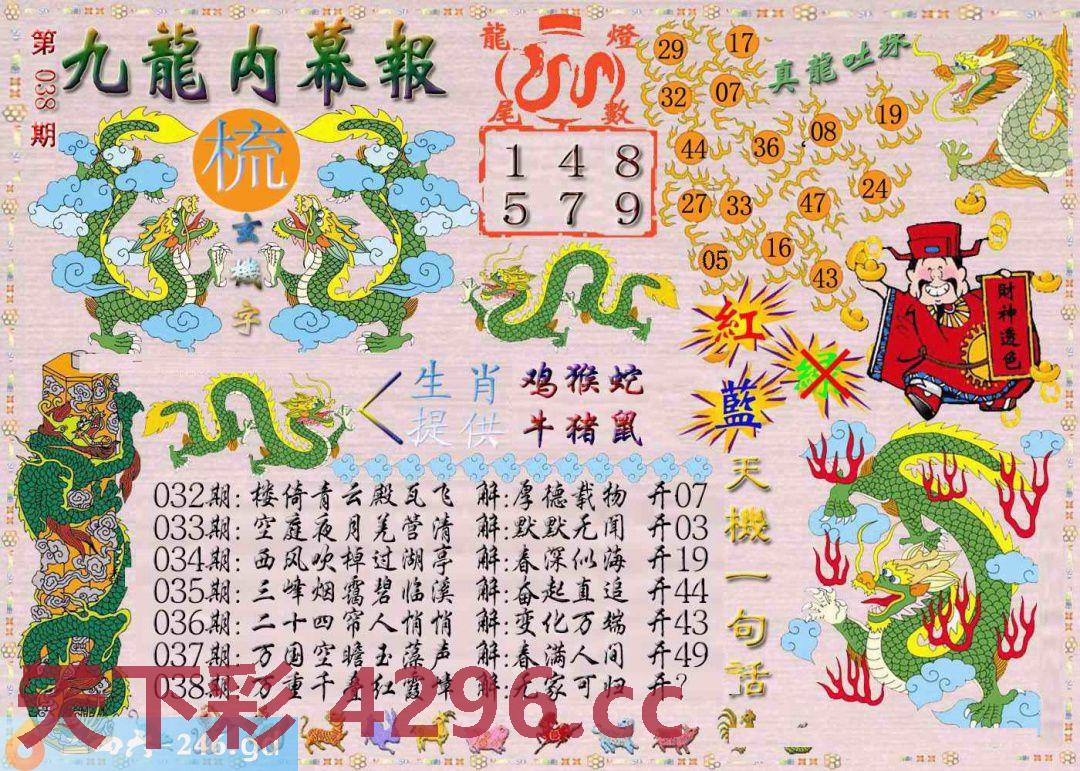 第038期
九龍内幕報
梳
玄機字
龍燈
尾數
1 4 8
5 7 9
真龍吐珠
29 17
32 07
44 36 08 19
27 33 47 24
05 16 43
財神透色
紅
綠
藍
生肖 鸡猴蛇
提供 牛猪鼠
天機一句話
032期:楼倚青云殿瓦飞 解:厚德载物 开07
033期:空庭夜月羌管清 解:默默无闻 开03
034期:西风吹棹过湖亭 解:春深似海 开19
035期:三峰烟霭碧临溪 解:奋起直追 开44
036期:二十四帘人悄悄 解:变化万端 开43
037期:万国空瞻玉藻声 解:春满人间 开49
038期:万重千叠红霞嶂 解:无家可归 开?
天下彩 4296.cc
246.gd